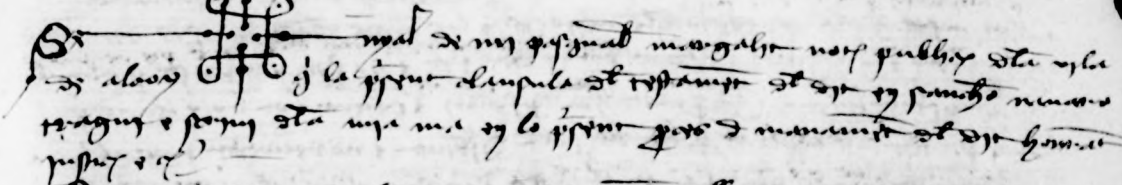 Se nyal de mi pasqual margalit notj publich dla vila
de alcoy q la psent clausula dl testamet dl dit en sancho navarro
tragui e scriui dla mia ma en lo psent pces d manamet dl dit honrat
justicj e cj